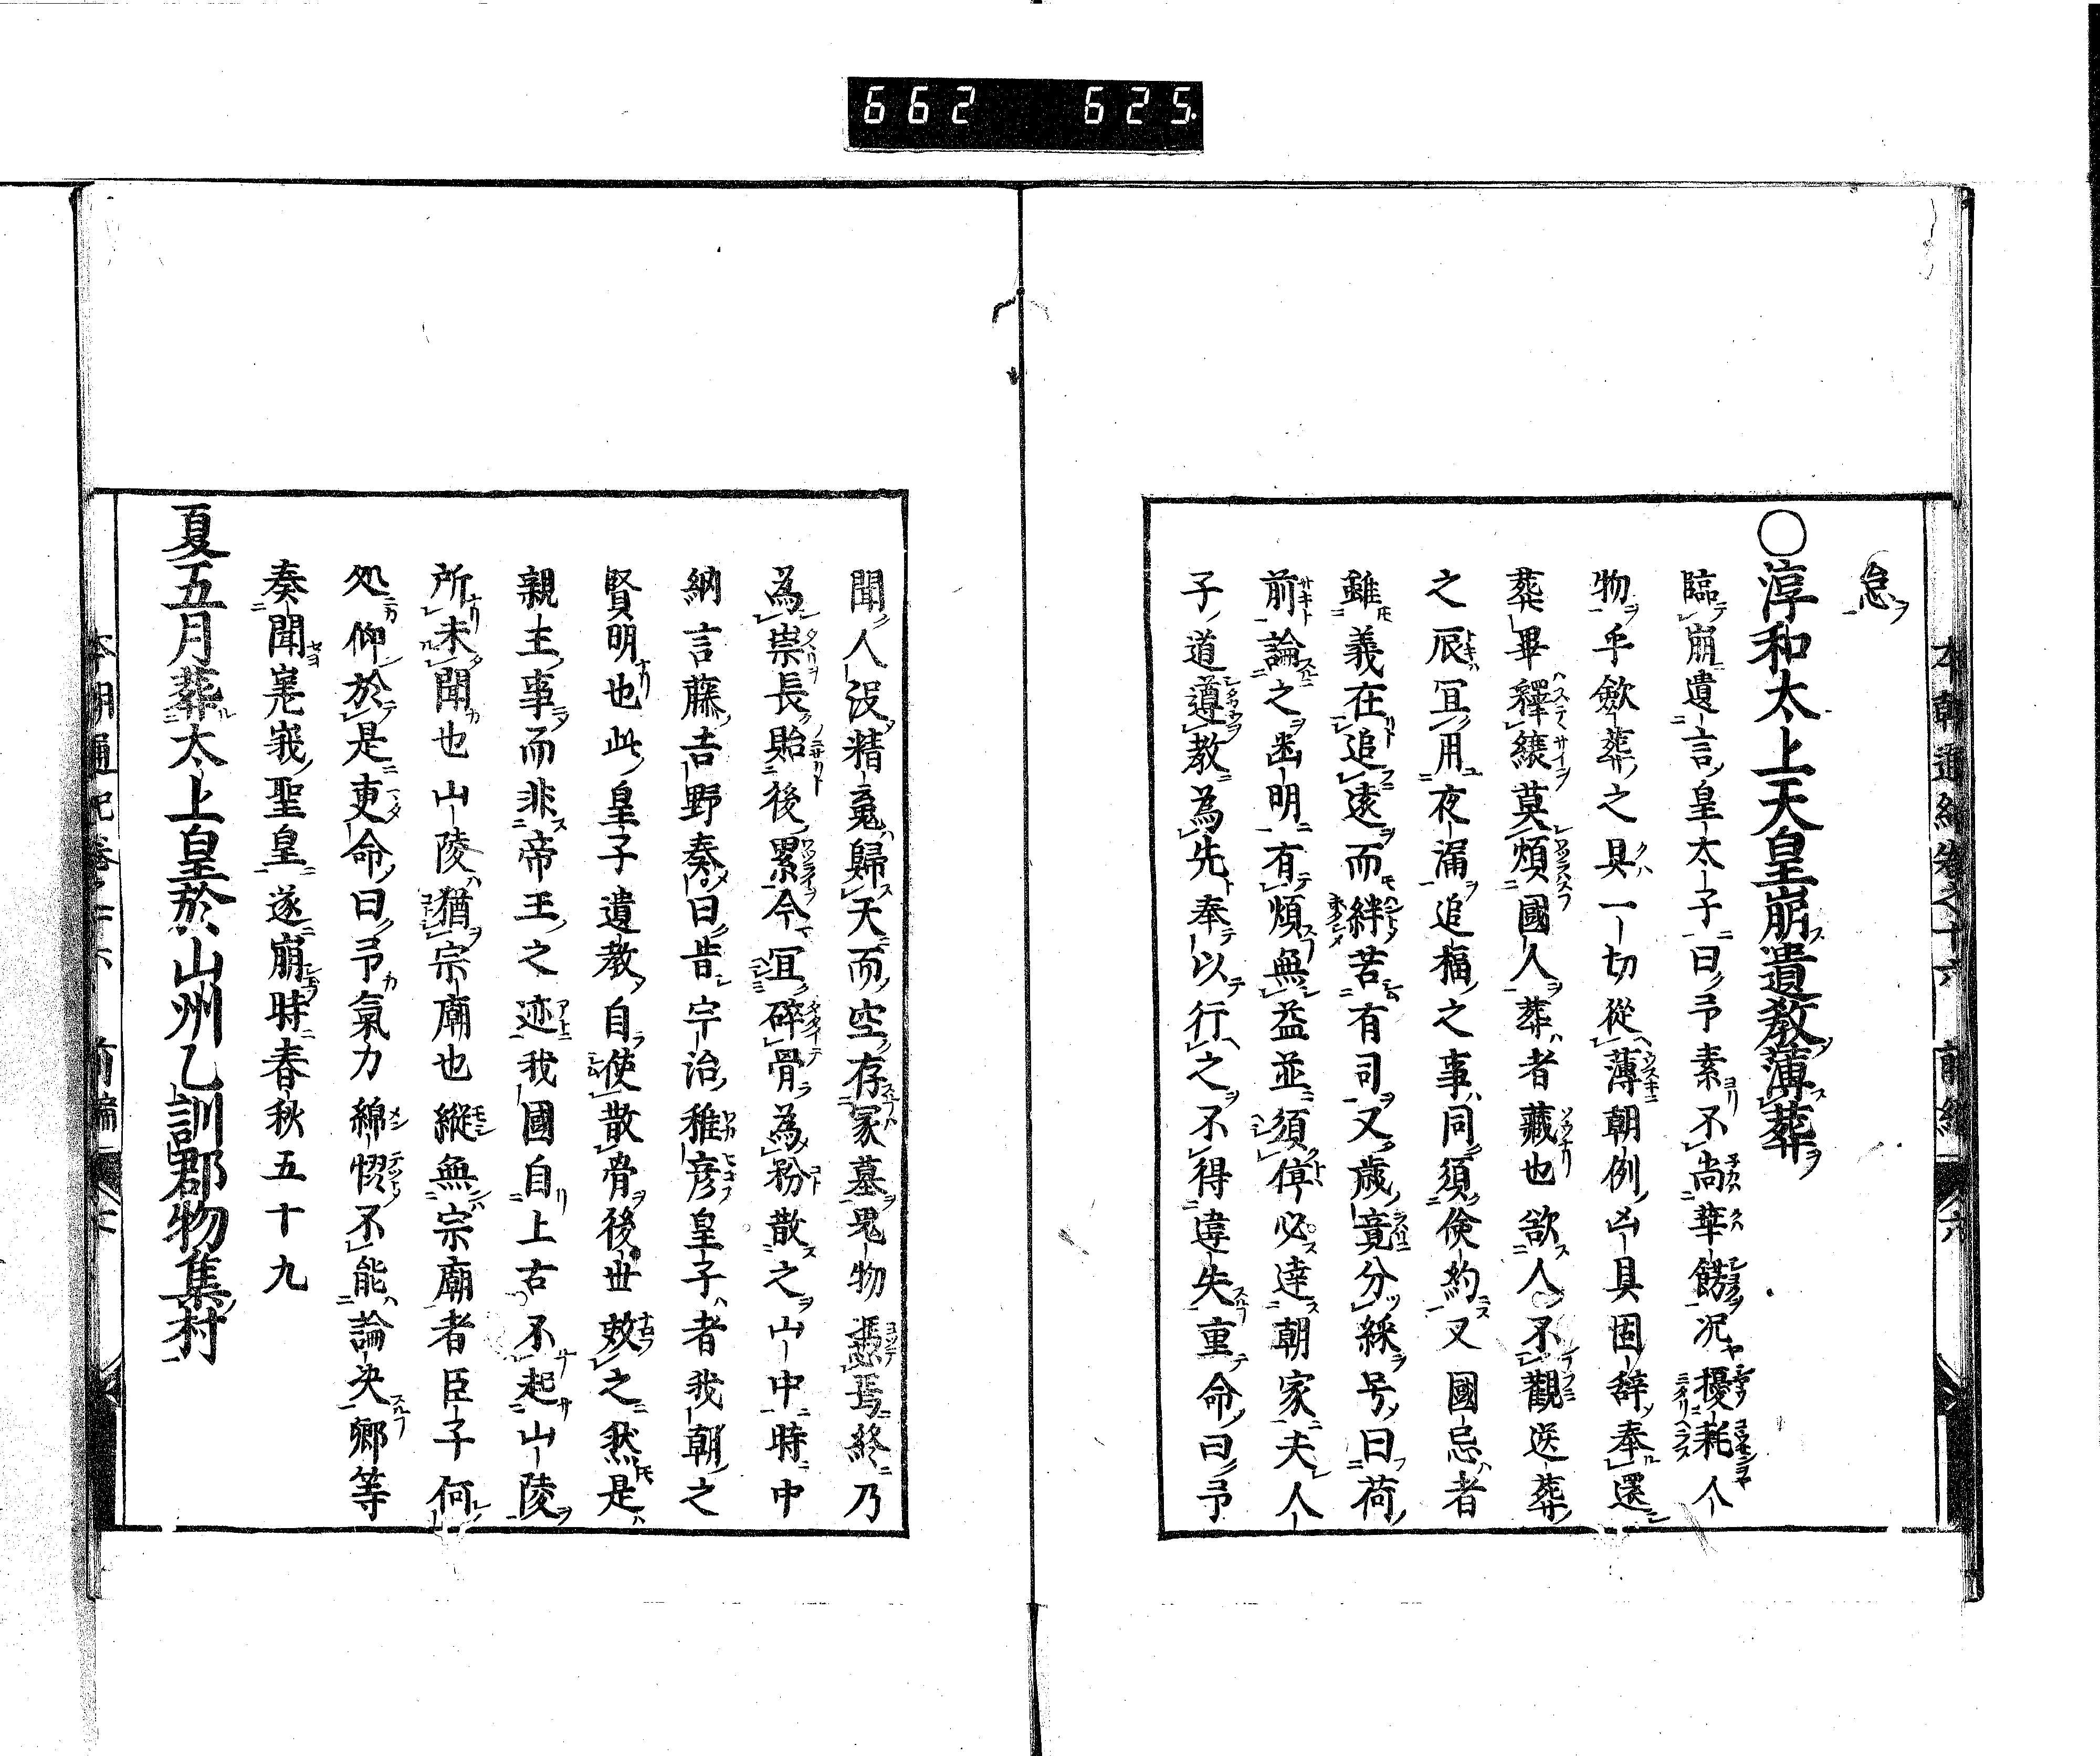 662 625
本朝通紀卷之十六 前編 六
怠
○淳和太上天皇崩遺教薄葬
臨崩遺言皇太子曰予素不尚華餝况擾耗人
物乎斂葬之具一切從薄朝例凶具固辞奉還
葬畢釋縗莫煩國人葬者藏也欲人不觀送葬
之辰冝用夜漏追福之事同須儉約又國忌者
雖義在追遠而絆苦有司又歳竟分綵号曰荷
前論之幽明有煩無益並須停必達朝家夫人
子道遵教為先奉以行之不得違失重命曰予
聞人没精䰟歸天而空存冢墓鬼物憑焉終乃
為祟長貽後累今冝碎骨為粉散之山中時中
納言藤吉野奏曰昔宇治稚彦皇子者我朝之
賢明也此皇子遺教自使散骨後世效之然是
親王事而非帝王之迹我國自上古不起山陵
所未聞也山陵猶宗廟也縱無宗廟者臣子何
処仰於是更命曰予氣力綿惙不能論決卿等
奏聞嵯峩聖皇遂崩時春秋五十九
夏五月葬太上皇於山州乙訓郡物集村
本朝通紀卷之十六 前編